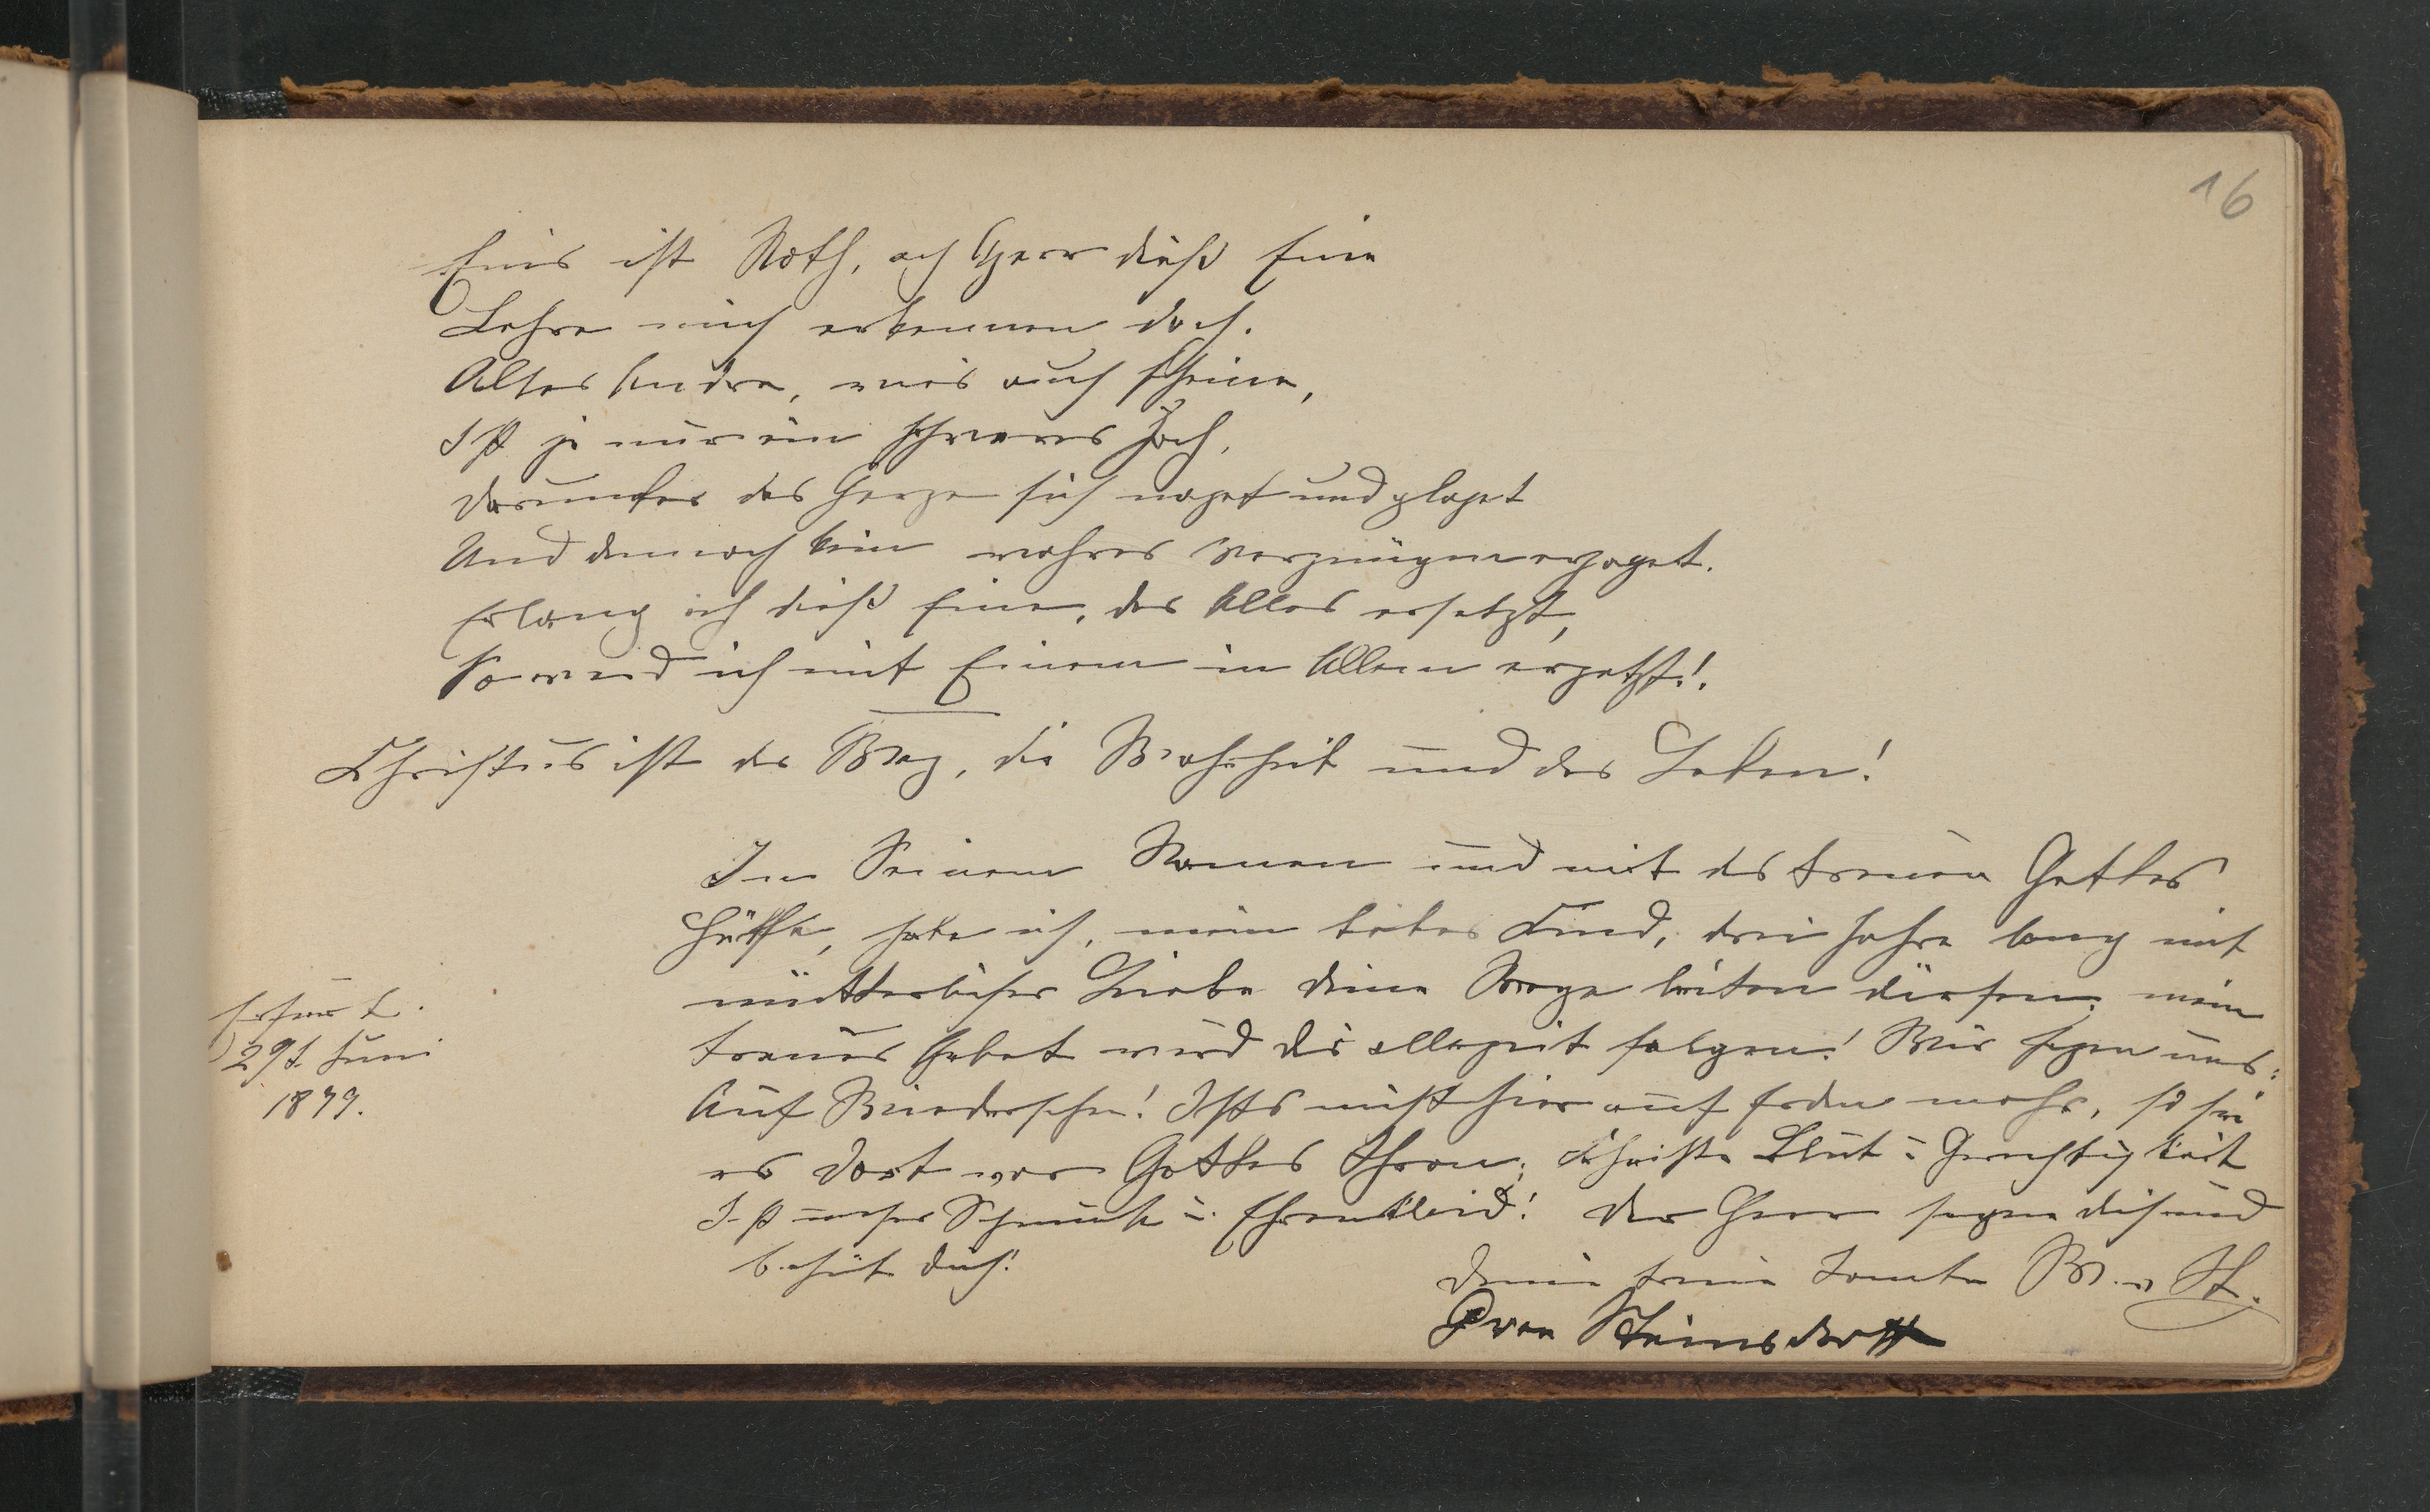 16
Eins ist Noth, ach Herr dieß Eine
Lehre mich erkennen doch.
Alles Andre, wies auch scheine,
Ist ja nur ein schweres Joch,
Darunter das Herze sich naget und plaget
Und dennoch kein wahres Vergnügen erjaget.
Erlang ich dieß Eine, das Alles ersetzt,
So werd ich mit Einem in Allem ergetzt!
Christus ist der Weg, die Wahrheit und das Leben!
In Seinem Namen und mit des treuen Gottes
Hülfe, habe ich, mein liebes Kind, drei Jahre lang mit
mütterlicher Liebe deine Wege leiten dürfen, mein
treues Gebet wird dir allezeit folgen! Wir sagen uns:
Auf Wiedersehn! Ists nicht hier auf Erden mehr, so sei
es dort vor Gottes Thron; Christi Blut u Gerechtigkeit
Ist unser Schmuck u. Ehrenkleid! Der Herr segne dich und
behüt dich!
Erfurt.
29t. Juni
1879.
Deine treue Tante W. v St.
von Steinsdorff